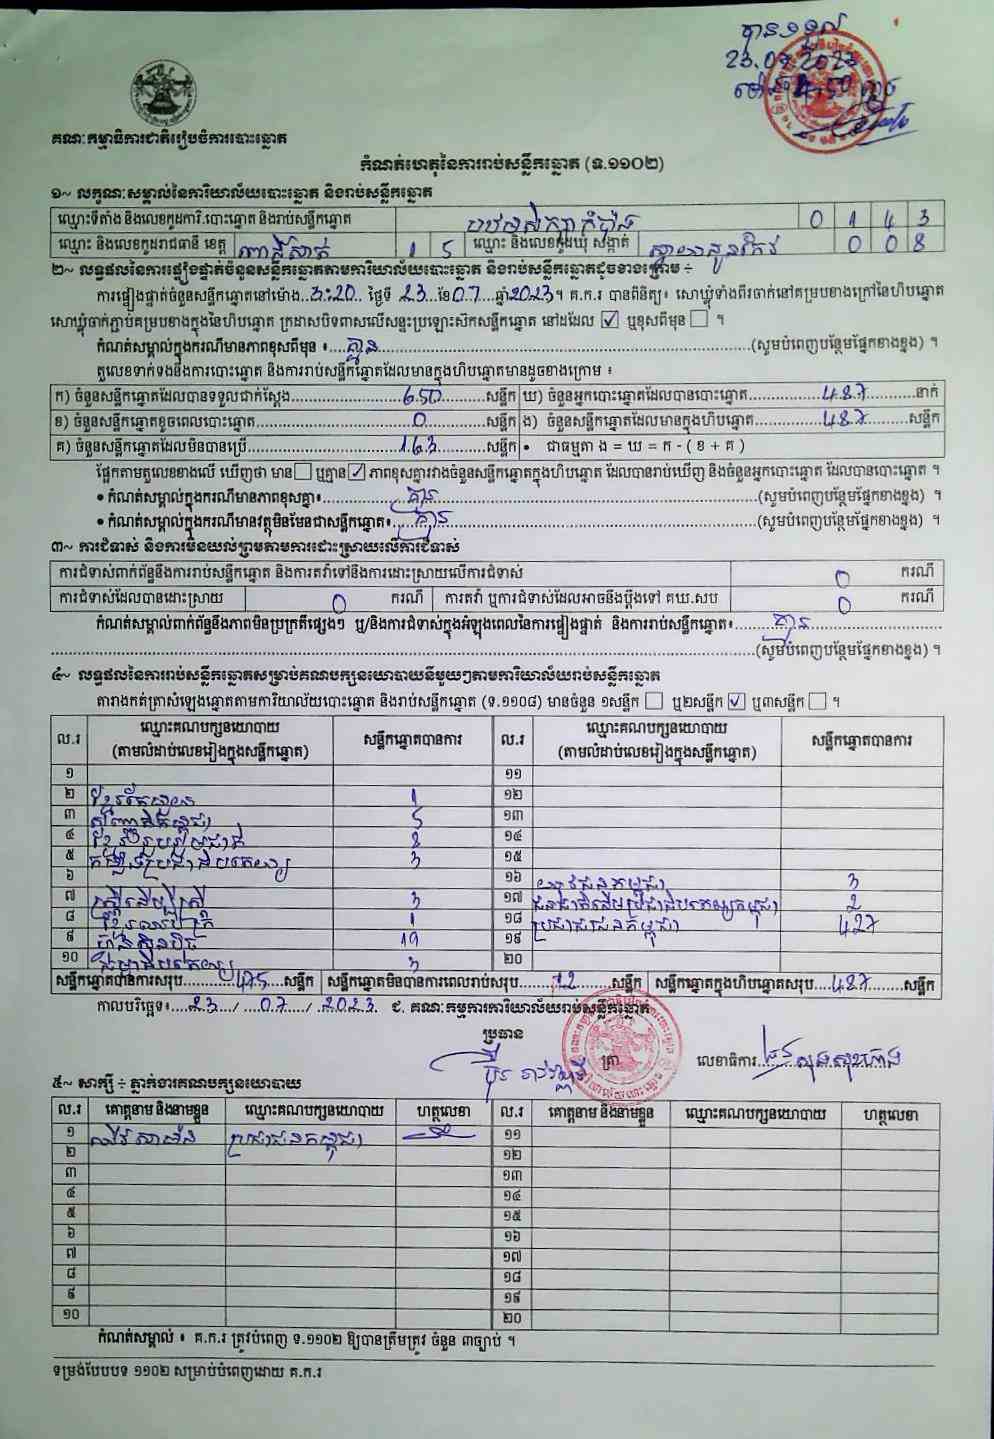 បានទទួល
23.07.2023
គណៈកម្មាធិការជាតិរៀបចំការបោះឆ្នោត
កំណត់ហេតុនៃការរាប់សន្លឹកឆ្នោត (ទ.១១០២)
១~ លក្ខណៈសម្គាល់នៃការិយាល័យបោះឆ្នោត និងរាប់សន្លឹកឆ្នោត
ឈ្មោះទីតាំង និងលេខកូដការិ.បោះឆ្នោត និងរាប់សន្លឹកឆ្នោត 0 1 4 3
ឈ្មោះ និងលេខកូដរាជធានី ខេត្ត ពោធិ៍សាត់ 1 5 ឈ្មោះ និងលេខកូដឃុំ សង្កាត់ ស្វាយដូនកែវ 0 0 8
២~ លទ្ធផលនៃការផ្ទៀងផ្ទាត់ចំនួនសន្លឹកឆ្នោតតាមការិយាល័យបោះឆ្នោត និងរាប់សន្លឹកឆ្នោតដូចខាងក្រោម ÷
ការផ្ទៀងផ្ទាត់ចំនួនសន្លឹកឆ្នោតនៅម៉ោង..3:20.. ថ្ងៃទី 23 ខែ 07 ឆ្នាំ 2023។ គ.ក.រ បានពិនិត្យ៖ សោឃ្លុំទាំងពីរចាក់នៅគម្របខាងក្រៅនៃហិបឆ្នោត
សោឃ្លុំចាក់ភ្ជាប់គម្របខាងក្នុងនៃហិបឆ្នោត ក្រដាសបិទពាសលើសន្ទះប្រឡោះស៊កសន្លឹកឆ្នោត នៅដដែល ☑ ឬខុសពីមុន ☐ ។
កំណត់សម្គាល់ក្នុងករណីមានភាពខុសពីមុន ៖ គ្មាន (សូមបំពេញបន្ថែមផ្នែកខាងខ្នង) ។
តួលេខទាក់ទងនឹងការបោះឆ្នោត និងការរាប់សន្លឹកឆ្នោតដែលមានក្នុងហិបឆ្នោតមានដូចខាងក្រោម ៖
ក) ចំនួនសន្លឹកឆ្នោតដែលបានទទួលជាក់ស្តែង 650 សន្លឹក ឃ) ចំនួនអ្នកបោះឆ្នោតដែលបានបោះឆ្នោត 487 នាក់
ខ) ចំនួនសន្លឹកឆ្នោតខូចពេលបោះឆ្នោត 0 សន្លឹក ង) ចំនួនសន្លឹកឆ្នោតដែលមានក្នុងហិបឆ្នោត 487 សន្លឹក
គ) ចំនួនសន្លឹកឆ្នោតដែលមិនបានប្រើ 163 សន្លឹក • ជាធម្មតា ង = ឃ = ក - ( ខ + គ )
ផ្អែកតាមតួលេខខាងលើ ឃើញថា មាន ☐ ឬគ្មាន ☑ ភាពខុសគ្នារវាងចំនួនសន្លឹកឆ្នោតក្នុងហិបឆ្នោត ដែលបានរាប់ឃើញ និងចំនួនអ្នកបោះឆ្នោត ដែលបានបោះឆ្នោត ។
• កំណត់សម្គាល់ក្នុងករណីមានភាពខុសគ្នា៖ គ្មាន (សូមបំពេញបន្ថែមផ្នែកខាងខ្នង) ។
• កំណត់សម្គាល់ក្នុងករណីមានវត្ថុមិនមែនជាសន្លឹកឆ្នោត៖ គ្មាន (សូមបំពេញបន្ថែមផ្នែកខាងខ្នង) ។
៣~ ការជំទាស់ និងការមិនយល់ព្រមតាមការដោះស្រាយលើការជំទាស់
ការជំទាស់ពាក់ព័ន្ធនឹងការរាប់សន្លឹកឆ្នោត និងការតវ៉ាទៅនឹងការដោះស្រាយលើការជំទាស់ 0 ករណី
ការជំទាស់ដែលបានដោះស្រាយ 0 ករណី ការតវ៉ា ឬការជំទាស់ដែលអាចនឹងប្តឹងទៅ គឃ.សប 0 ករណី
កំណត់សម្គាល់ពាក់ព័ន្ធនឹងភាពមិនប្រក្រតីផ្សេងៗ ឬ/និងការជំទាស់ក្នុងអំឡុងពេលនៃការផ្ទៀងផ្ទាត់ និងការរាប់សន្លឹកឆ្នោត៖ គ្មាន
(សូមបំពេញបន្ថែមផ្នែកខាងខ្នង) ។
៤~ លទ្ធផលនៃការរាប់សន្លឹកឆ្នោតសម្រាប់គណបក្សនយោបាយនីមួយៗតាមការិយាល័យរាប់សន្លឹកឆ្នោត
តារាងកត់ត្រាសំឡេងឆ្នោតតាមការិយាល័យបោះឆ្នោត និងរាប់សន្លឹកឆ្នោត (ទ.១១០៨) មានចំនួន ១សន្លឹក ☐ ឬ២សន្លឹក ☑ ឬ៣សន្លឹក ☐ ។
ល.រ ឈ្មោះគណបក្សនយោបាយ (តាមលំដាប់លេខរៀងក្នុងសន្លឹកឆ្នោត) សន្លឹកឆ្នោតបានការ ល.រ ឈ្មោះគណបក្សនយោបាយ (តាមលំដាប់លេខរៀងក្នុងសន្លឹកឆ្នោត) សន្លឹកឆ្នោតបានការ
១ ១១
២ 1 ១២
៣ 5 ១៣
៤ ខ្មែររួបរួមជាតិ 8 ១៤
៥ កម្លាំងប្រជាធិបតេយ្យ 3 ១៥
៦ ១៦ យុវជនកម្ពុជា 3
៧ ស្ត្រីដើម្បីស្ត្រី 3 ១៧ ជនជាតិដើមប្រជាធិបតេយ្យកម្ពុជា 2
៨ 1 ១៨ ប្រជាជនកម្ពុជា 427
៩ ហ៊្វុនស៊ិនប៉ិច 19 ១៩
១០ ធម្មាធិបតេយ្យ 3 ២០
សន្លឹកឆ្នោតបានការសរុប 475 សន្លឹក សន្លឹកឆ្នោតមិនបានការពេលរាប់សរុប 12 សន្លឹក សន្លឹកឆ្នោតក្នុងហិបឆ្នោតសរុប 487 សន្លឹក
កាលបរិច្ឆេទ៖ 23 / 07 / 2023 ជ. គណៈកម្មការការិយាល័យរាប់សន្លឹកឆ្នោត
ប្រធាន
ត្រា លេខាធិការ
៥~ សាក្សី ÷ ភ្នាក់ងារគណបក្សនយោបាយ
ល.រ គោត្តនាម និងនាមខ្លួន ឈ្មោះគណបក្សនយោបាយ ហត្ថលេខា ល.រ គោត្តនាម និងនាមខ្លួន ឈ្មោះគណបក្សនយោបាយ ហត្ថលេខា
១ ប្រជាជនកម្ពុជា ១១
២ ១២
៣ ១៣
៤ ១៤
៥ ១៥
៦ ១៦
៧ ១៧
៨ ១៨
៩ ១៩
១០ ២០
កំណត់សម្គាល់ ៖ គ.ក.រ ត្រូវបំពេញ ទ.១១០២ ឱ្យបានត្រឹមត្រូវ ចំនួន ៣ច្បាប់ ។
ទម្រង់បែបបទ ១១០២ សម្រាប់បំពេញដោយ គ.ក.រ